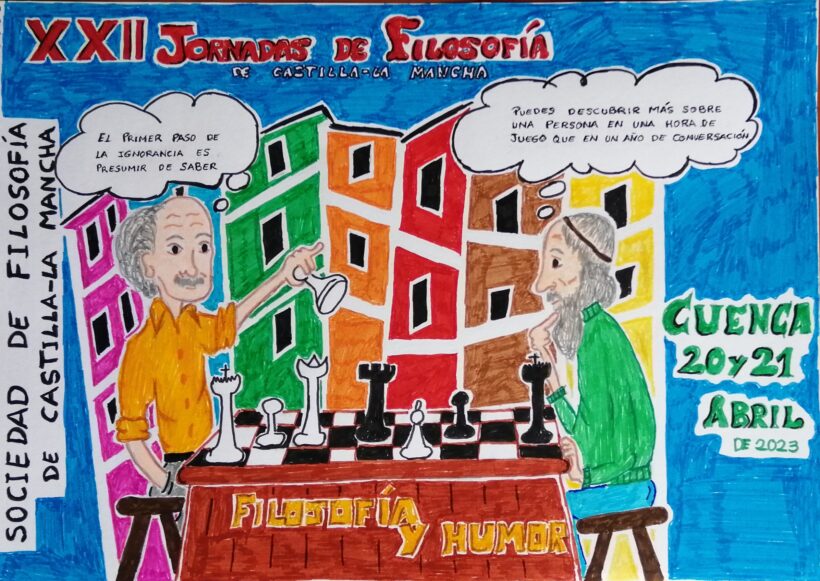 XXII JORNADAS DE FILOSOFÍA
DE CASTILLA-LA MANCHA
EL PRIMER PASO DE
LA IGNORANCIA ES
PRESUMIR DE SABER
PUEDES DESCUBRIR MÁS SOBRE
UNA PERSONA EN UNA HORA DE
JUEGO QUE EN UN AÑO DE CONVERSACIÓN
SOCIEDAD DE FILOSOFÍA
DE CASTILLA-LA MANCHA
CUENCA
20 Y 21
ABRIL
DE 2023
FILOSOFÍA
Y HUMOR